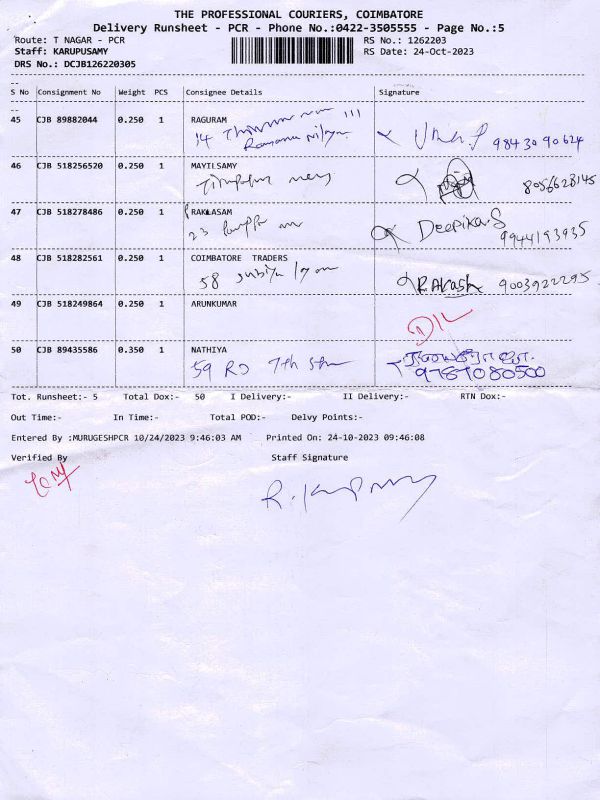 THE PROFESSIONAL COURIERS, COIMBATORE
Delivery Runsheet - PCR - Phone No.:0422-3505555 - Page No.:5
Route: T NAGAR - PCR RS No.: 1262203
Staff: KARUPUSAMY RS Date: 24-Oct-2023
DRS No.: DCJB126220305
S No Consignment No Weight PCS Consignee Details Signature
45 CJB 89882044 0.250 1 RAGURAM
14
9843090624
46 CJB 518256520 0.250 1 MAYILSAMY
8056628145
47 CJB 518278486 0.250 1 RAKLASAM
23
Deepika.S
9944193935
48 CJB 518282561 0.250 1 COIMBATORE TRADERS
58 R.Akash 9003922295
49 CJB 518249864 0.250 1 ARUNKUMAR
50 CJB 89435586 0.350 1 NATHIYA
59 RD 7th
9787080500
Tot. Runsheet:- 5 Total Dox:- 50 I Delivery:- II Delivery:- RTN Dox:-
Out Time:- In Time:- Total POD:- Delvy Points:-
Entered By :MURUGESHPCR 10/24/2023 9:46:03 AM Printed On: 24-10-2023 09:46:08
Verified By Staff Signature